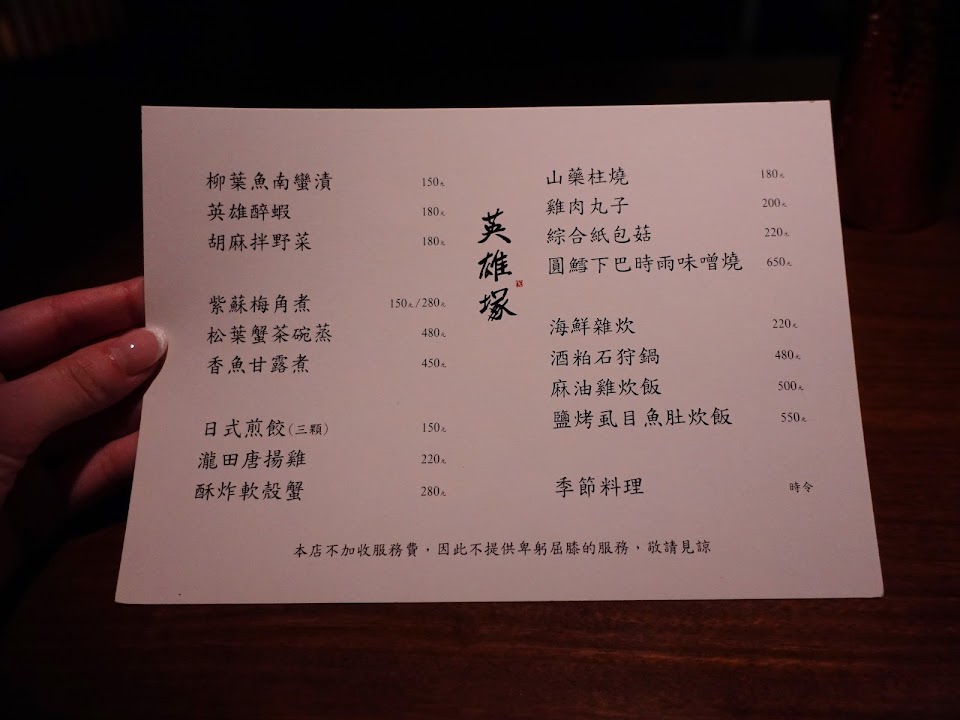 柳葉魚南蠻漬 150元
英雄醉蝦 180元
胡麻拌野菜 180元
紫蘇梅角煮 150元/280元
松葉蟹茶碗蒸 480元
香魚甘露煮 450元
日式煎餃(三顆) 150元
瀧田唐揚雞 220元
酥炸軟殼蟹 280元
英雄塚
山藥柱燒 180元
雞肉丸子 200元
綜合紙包菇 220元
圓鱈下巴時雨味噌燒 650元
海鮮雜炊 220元
酒粕石狩鍋 480元
麻油雞炊飯 500元
鹽烤虱目魚肚炊飯 550元
季節料理 時令
本店不加收服務費，因此不提供卑躬屈膝的服務，敬請見諒